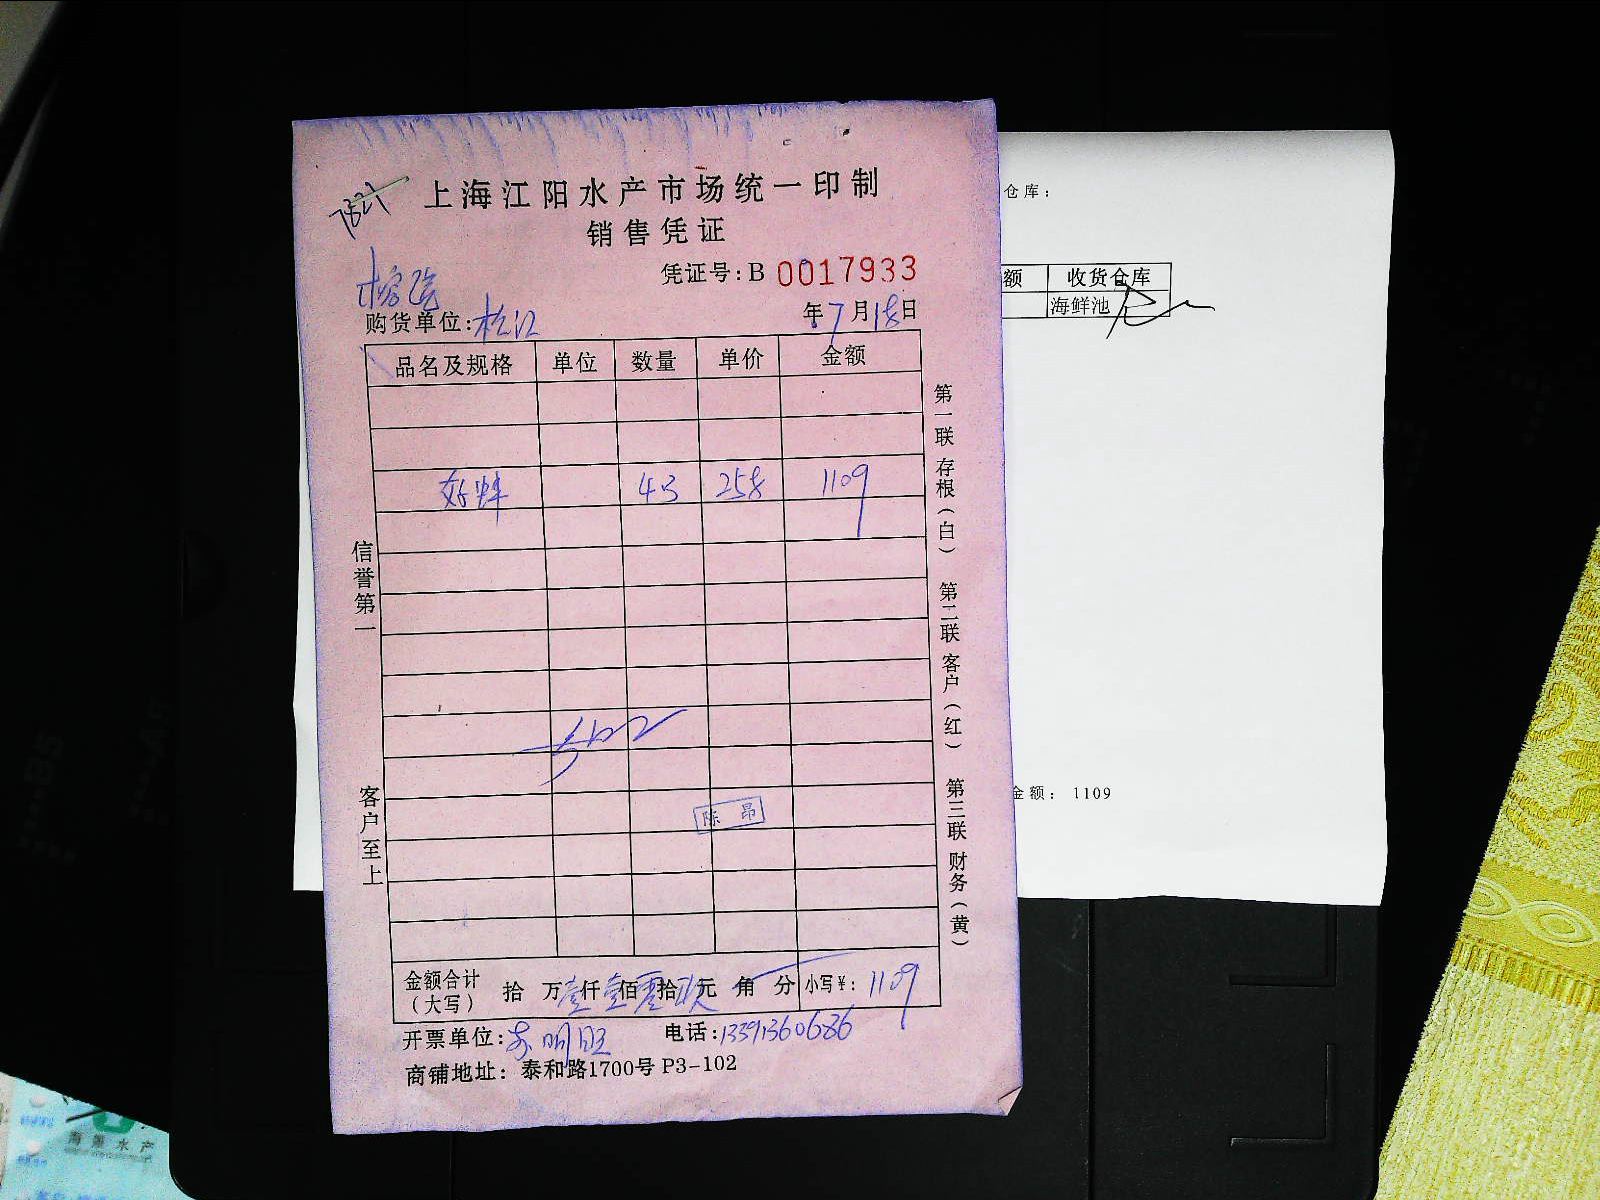 7821
上海江阳水产市场统一印制
销售凭证
凭证号：B 0017933
购货单位：松江
年7月18日
品名及规格 单位 数量 单价 金额
43 258 1109
信誉第一
客户至上
第一联 存根（白） 第二联 客户（红） 第三联 财务（黄）
陈 昂
金额合计（大写） 拾 万壹仟壹佰零拾玖元 角 分 小写¥：1109
开票单位： 电话：13391360686
商铺地址：泰和路1700号 P3-102
仓库：
额 收货仓库
海鲜池
金额： 1109
水产